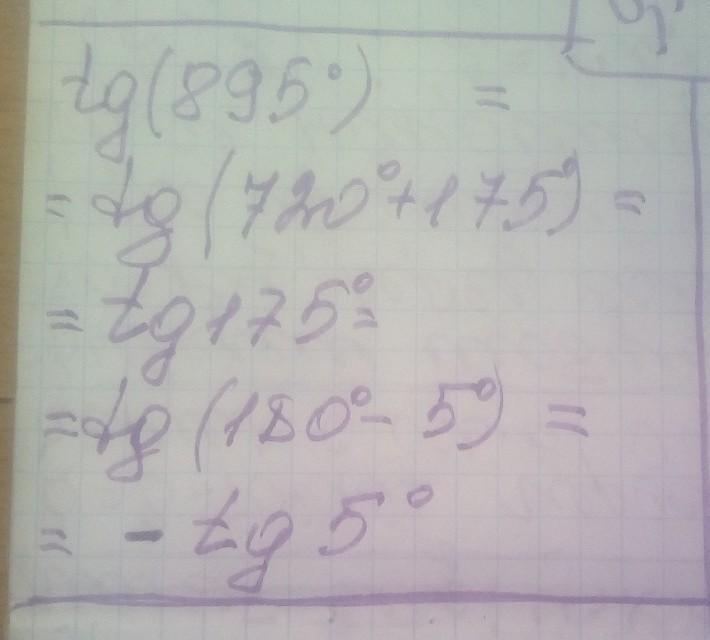 tg(895°) =
= tg(720°+175°) =
= tg175°=
= tg(180°- 5°) =
= - tg 5°